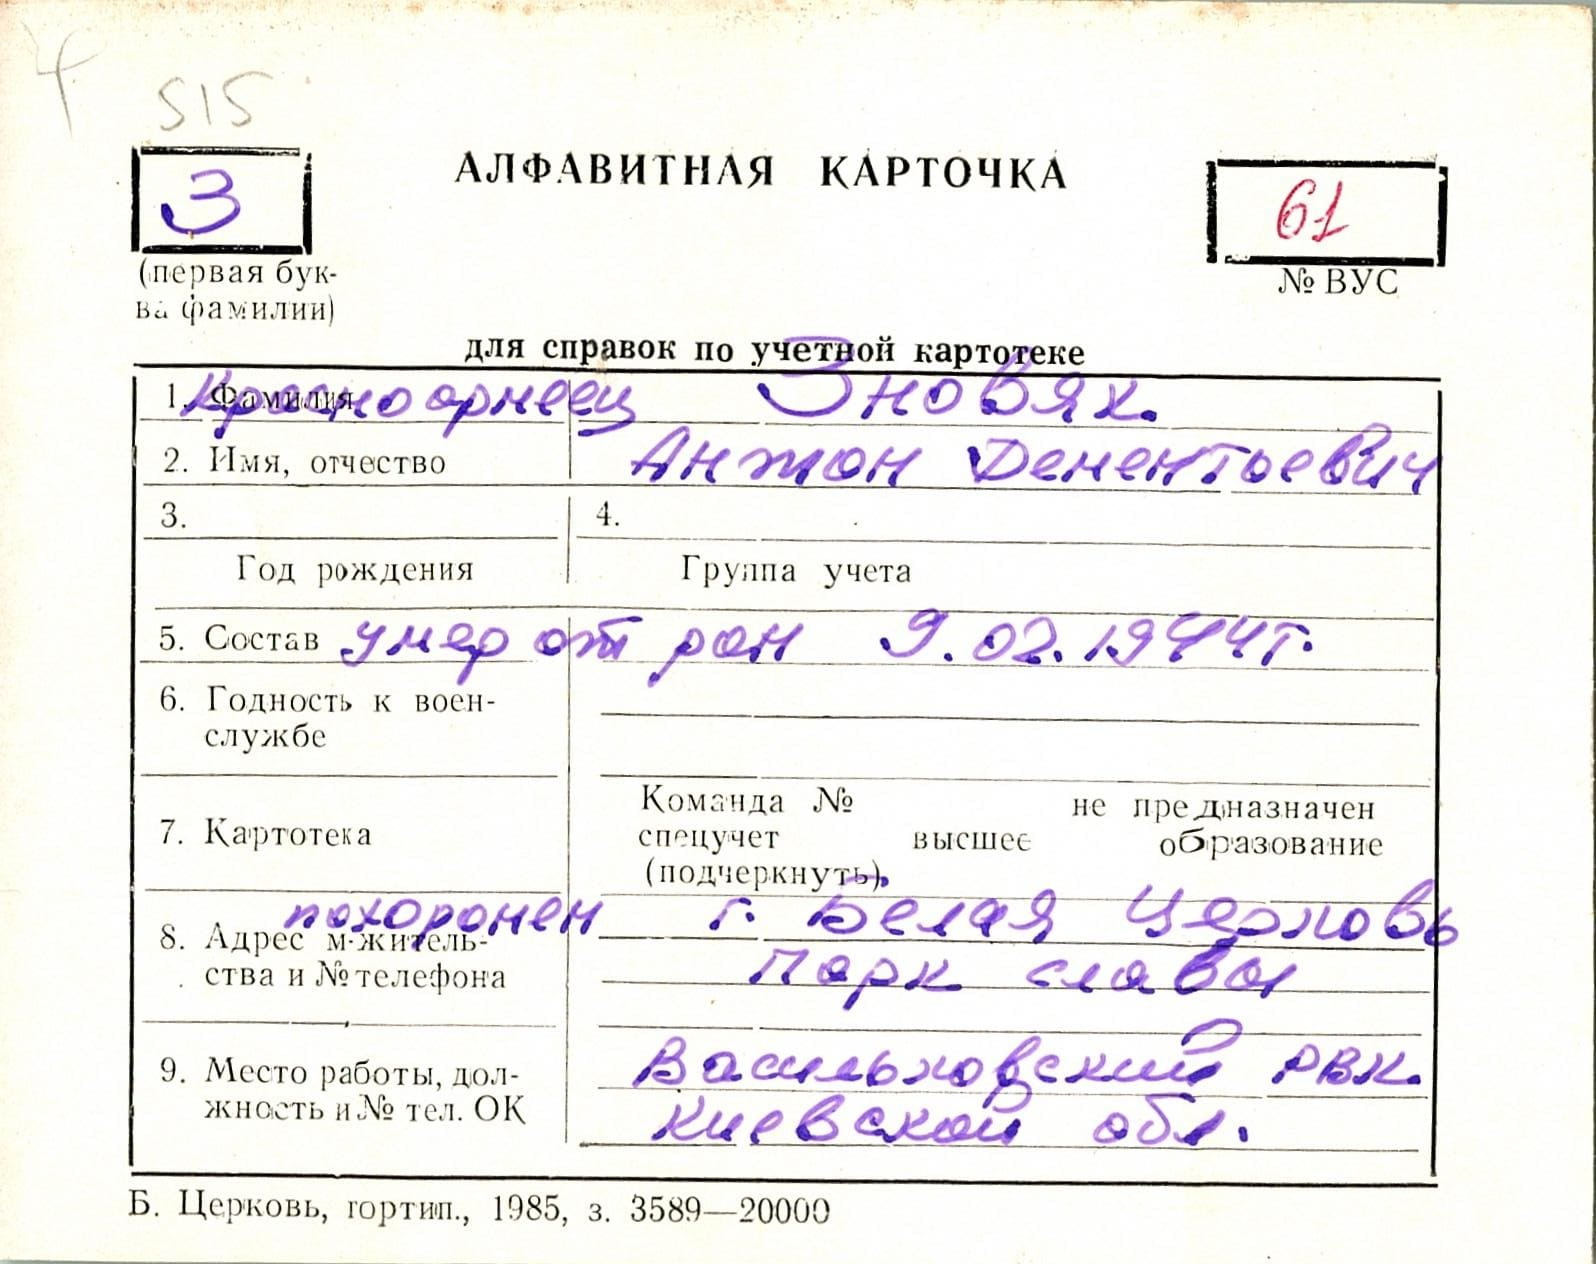 515
З
АЛФАВИТНАЯ КАРТОЧКА
61
(первая бук-
ва фамилии)
№ ВУС
для справок по учетной картотеке
1. Фамилия красноармеец Зновяк.
2. Имя, отчество Антон Дементьевич
3. 4.
Год рождения Группа учета
5. Состав умер от ран 9.02.1944г.
6. Годность к воен-
службе
Команда № не предназначен
7. Картотека спецучет высшее образование
(подчеркнуть)
похоронен г. Белая Церковь
8. Адрес м-житель-
ства и № телефона Парк славы
9. Место работы, дол- Васильковский РВК.
жность и № тел. ОК Киевской обл.
Б. Церковь, гортип., 1985, з. 3589—20000